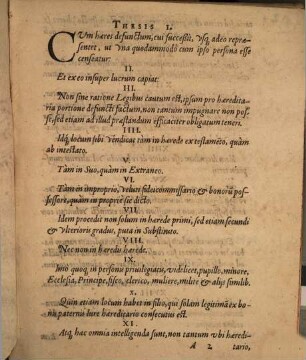 THESIS I.
CUm hæres defunctum, cui succeßit, usq; adeò repræ-
sentet, ut vna quodammodò cum ipso persona esse
censeatur:
II.
Et ex eo insuper lucrum capiat:
III.
Non sine ratione Legibus cautum est, ipsum pro hæredita-
ria portione defuncti factum, non tantùm impugnare non pos-
se, sed etiam ad illud præstandum efficaciter obligatum teneri.
IIII.
Idq́; locum sibi vendicat tàm in hærede ex testamẽto, quàm
ab intestato.
V.
Tàm in Suo, quàm in Extraneo.
VI.
Tàm in improprio, veluti fideicommissario & bonorũ pos-
sessore, quàm in propriè sic dicto.
VII.
Idem procedit non solùm in hærede primi, sed etiam secundi
& vlterioris gradus, puta in Substituto.
VIII.
Nec non in hæredis hærede.
IX.
Imò quoq; in personis privilegiatis, videlicet, pupillo, minore,
Ecclesia, Principe, fisco, clerico, muliere, milite & alijs similib.
X.
Quin etiam locum habet in filio, qui solam legitimã ex bo-
nis paternis iure hæreditario consecutus est.
XI.
Atq; hæc omnia intelligenda sunt, non tantùm vbi heredi-
A 2 tario,